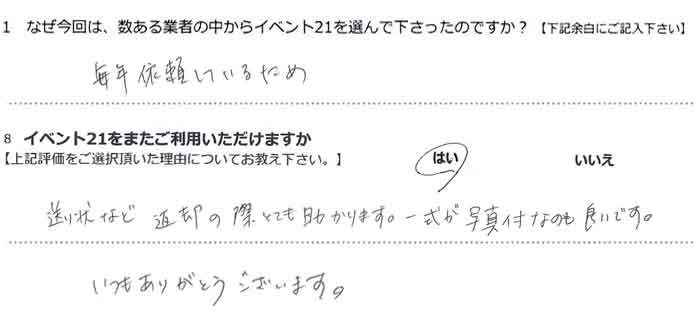 1 なぜ今回は、数ある業者の中からイベント21を選んで下さったのですか？【下記余白にご記入下さい】
毎年依頼しているため
8 イベント21をまたご利用いただけますか
【上記評価をご選択頂いた理由についてお教え下さい。】 はい いいえ
送り状など返却の際とても助かります。一式が写真付なのも良いです。
いつもありがとうございます。